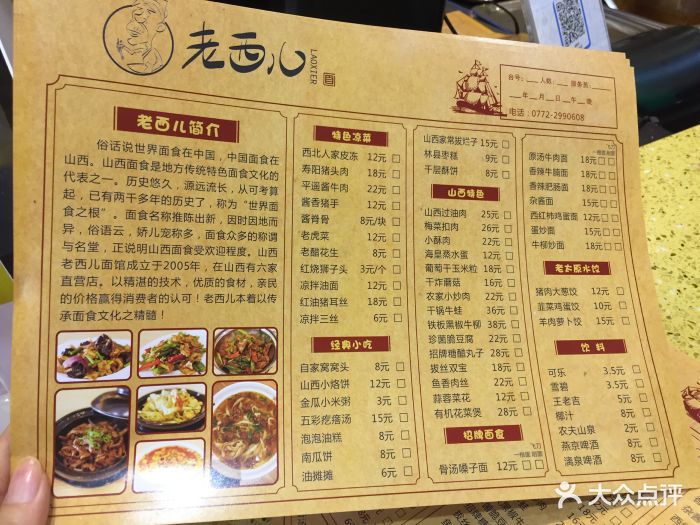 老西儿
LAOXIER
台号: 人数: 服务员:
年 月 日 午 晚
电话:0772-2990608
老西儿简介
俗话说世界面食在中国,中国面食在
山西。山西面食是地方传统特色面食文化的
代表之一。历史悠久,源远流长,从可考算
起,已有两千年的历史了,称为“世界面
食之根”。面食名称推陈出新,因时因地而
异,俗语云,娇儿宠称多,面食众多的称谓
与名堂,正说明山西面食受欢迎程度。山西
老西儿面馆成立于2005年,在山西有六家
直营店。以精湛的技术,优质的食材,亲民
的价格赢得消费者的认可!老西儿本着以传
承面食文化之精髓!
特色凉菜
西北人家皮冻 12元
寿阳猪头肉 18元
平遥酱牛肉 22元
酱香猪手 12元
酱脊骨 8元/块
老虎菜 12元
老醋花生 8元
红烧狮子头 3元/个
凉拌油面 12元
红油猪耳丝 18元
凉拌三丝 6元
经典小吃
自家窝窝头 8元
山西小烙饼 12元
金瓜小米粥 3元
五彩疙瘩汤 15元
泡泡油糕 8元
南瓜饼 8元
油摊摊 6元
山西家常拔烂子 15元
林县枣糕 9元
千层酥饼 8元
山西特色
山西过油肉 25元
梅菜扣肉 26元
小酥肉 22元
海皇蒸水蛋 12元
葡萄干玉米粒 18元
干炸蘑菇 16元
农家小炒肉 22元
干锅牛蛙 58元
铁板黑椒牛柳 38元
珍菌脆豆腐 22元
招牌糖醋丸子 28元
拔丝双宝 18元
鱼香肉丝 22元
蒜蓉菜花 22元
有机花菜煲 28元
招牌面食
飞刀
一根面 削面
骨汤嗓子面 12元
飞刀
一根面 削面
原汤牛肉面 18元
香辣牛腩面 18元
香辣肥肠面 18元
杂酱面 15元
西红柿鸡蛋面 12元
蛋炒面 15元
牛柳炒面 18元
老太原水饺
猪肉大葱饺 12元
韭菜鸡蛋饺 10元
羊肉萝卜饺 15元
饮料
可乐 3.5元
雪碧 3.5元
王老吉 5元
椰汁 8元
农夫山泉 2元
燕京啤酒 8元
漓泉啤酒 8元
大众点评